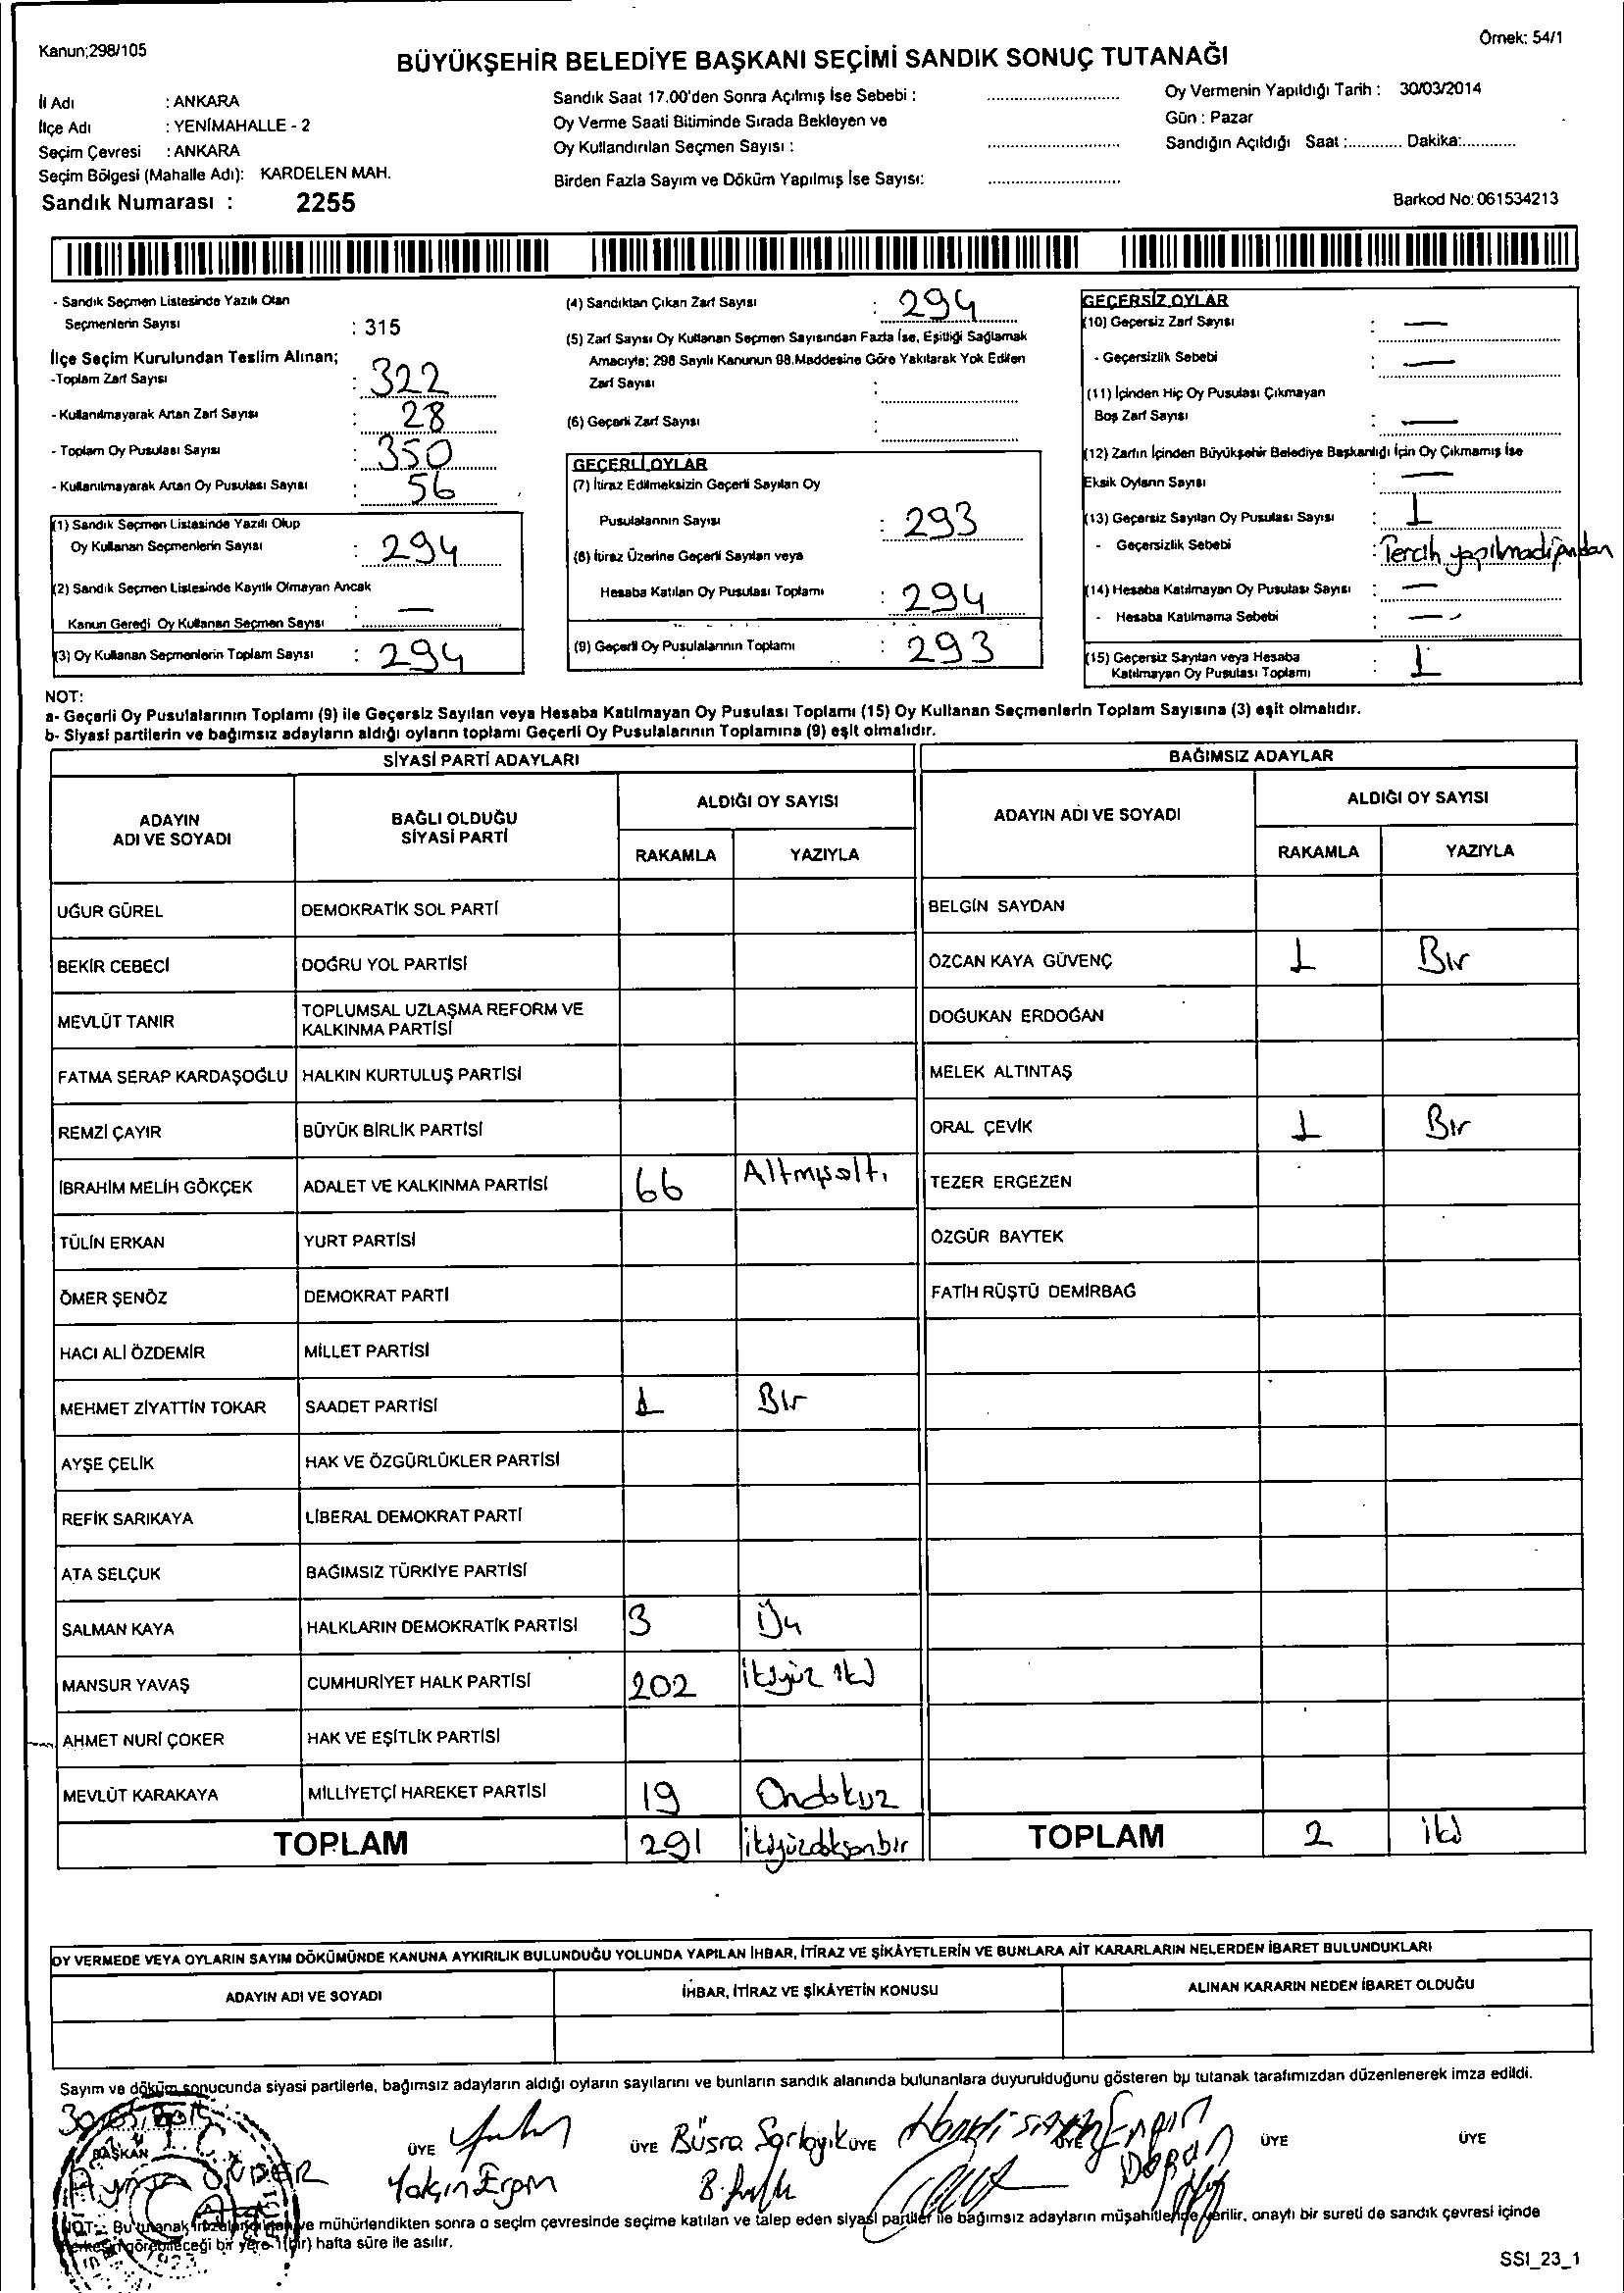 Kanun;298/105
Örnek: 54/1
BÜYÜKŞEHİR BELEDİYE BAŞKANI SEÇİMİ SANDIK SONUÇ TUTANAĞI
İl Adı : ANKARA
İlçe Adı : YENİMAHALLE - 2
Seçim Çevresi : ANKARA
Seçim Bölgesi (Mahalle Adı): KARDELEN MAH.
Sandık Numarası : 2255
Sandık Saat 17.00'den Sonra Açılmış İse Sebebi :
Oy Verme Saati Bitiminde Sırada Bekleyen ve
Oy Kullandırılan Seçmen Sayısı :
Birden Fazla Sayım ve Döküm Yapılmış İse Sayısı:
Oy Vermenin Yapıldığı Tarih : 30/03/2014
Gün : Pazar
Sandığın Açıldığı Saat :............ Dakika:............
Barkod No: 061534213
- Sandık Seçmen Listesinde Yazılı Olan
Seçmenlerin Sayısı : 315
İlçe Seçim Kurulundan Teslim Alınan;
-Toplam Zarf Sayısı : 322
- Kullanılmayarak Artan Zarf Sayısı : 28
- Toplam Oy Pusulası Sayısı : 350
- Kullanılmayarak Artan Oy Pusulası Sayısı : 56
(1) Sandık Seçmen Listesinde Yazılı Olup
Oy Kullanan Seçmenlerin Sayısı : 294
(2) Sandık Seçmen Listesinde Kayıtlı Olmayan Ancak
Kanun Gereği Oy Kullanan Seçmen Sayısı : —
(3) Oy Kullanan Seçmenlerin Toplam Sayısı : 294
(4) Sandıktan Çıkan Zarf Sayısı : 294
(5) Zarf Sayısı Oy Kullanan Seçmen Sayısından Fazla İse, Eşitliği Sağlamak
Amacıyla; 298 Sayılı Kanunun 98.Maddesine Göre Yakılarak Yok Edilen
Zarf Sayısı :
(6) Geçerli Zarf Sayısı :
GEÇERLİ OYLAR
(7) İtiraz Edilmeksizin Geçerli Sayılan Oy
Pusulalarının Sayısı : 293
(8) İtiraz Üzerine Geçerli Sayılan veya
Hesaba Katılan Oy Pusulası Toplamı : 294
(9) Geçerli Oy Pusulalarının Toplamı : 293
GEÇERSİZ OYLAR
(10) Geçersiz Zarf Sayısı : —
- Geçersizlik Sebebi : —
(11) İçinden Hiç Oy Pusulası Çıkmayan
Boş Zarf Sayısı : —
(12) Zarfın İçinden Büyükşehir Belediye Başkanlığı İçin Oy Çıkmamış İse
Eksik Oyların Sayısı : —
(13) Geçersiz Sayılan Oy Pusulası Sayısı : 1
- Geçersizlik Sebebi : Tercih yapılmadığından
(14) Hesaba Katılmayan Oy Pusulası Sayısı : —
- Hesaba Katılmama Sebebi : —
(15) Geçersiz Sayılan veya Hesaba
Katılmayan Oy Pusulası Toplamı : 1
NOT:
a- Geçerli Oy Pusulalarının Toplamı (9) ile Geçersiz Sayılan veya Hesaba Katılmayan Oy Pusulası Toplamı (15) Oy Kullanan Seçmenlerin Toplam Sayısına (3) eşit olmalıdır.
b- Siyasi partilerin ve bağımsız adayların aldığı oyların toplamı Geçerli Oy Pusulalarının Toplamına (9) eşit olmalıdır.
SİYASİ PARTİ ADAYLARI
ADAYIN
ADI VE SOYADI
BAĞLI OLDUĞU
SİYASİ PARTİ
ALDIĞI OY SAYISI
RAKAMLA YAZIYLA
UĞUR GÜREL DEMOKRATİK SOL PARTİ
BEKİR CEBECİ DOĞRU YOL PARTİSİ
MEVLÜT TANIR TOPLUMSAL UZLAŞMA REFORM VE
KALKINMA PARTİSİ
FATMA SERAP KARDAŞOĞLU HALKIN KURTULUŞ PARTİSİ
REMZİ ÇAYIR BÜYÜK BİRLİK PARTİSİ
İBRAHİM MELİH GÖKÇEK ADALET VE KALKINMA PARTİSİ 66 Altmışaltı
TÜLİN ERKAN YURT PARTİSİ
ÖMER ŞENÖZ DEMOKRAT PARTİ
HACI ALİ ÖZDEMİR MİLLET PARTİSİ
MEHMET ZİYATTİN TOKAR SAADET PARTİSİ 1 Bir
AYŞE ÇELİK HAK VE ÖZGÜRLÜKLER PARTİSİ
REFİK SARIKAYA LİBERAL DEMOKRAT PARTİ
ATA SELÇUK BAĞIMSIZ TÜRKİYE PARTİSİ
SALMAN KAYA HALKLARIN DEMOKRATİK PARTİSİ 3 Üç
MANSUR YAVAŞ CUMHURİYET HALK PARTİSİ 202 ikiyüz iki
AHMET NURİ ÇOKER HAK VE EŞİTLİK PARTİSİ
MEVLÜT KARAKAYA MİLLİYETÇİ HAREKET PARTİSİ 19 Ondokuz
TOPLAM 291 ikiyüzdoksanbir
BAĞIMSIZ ADAYLAR
ADAYIN ADI VE SOYADI
ALDIĞI OY SAYISI
RAKAMLA YAZIYLA
BELGİN SAYDAN
ÖZCAN KAYA GÜVENÇ 1 Bir
DOĞUKAN ERDOĞAN
MELEK ALTINTAŞ
ORAL ÇEVİK 1 Bir
TEZER ERGEZEN
ÖZGÜR BAYTEK
FATİH RÜŞTÜ DEMİRBAĞ
TOPLAM 2 iki
OY VERMEDE VEYA OYLARIN SAYIM DÖKÜMÜNDE KANUNA AYKIRILIK BULUNDUĞU YOLUNDA YAPILAN İHBAR, İTİRAZ VE ŞİKÂYETLERİN VE BUNLARA AİT KARARLARIN NELERDEN İBARET BULUNDUKLARI
ADAYIN ADI VE SOYADI
İHBAR, İTİRAZ VE ŞİKÂYETİN KONUSU
ALINAN KARARIN NEDEN İBARET OLDUĞU
Sayım ve döküm sonucunda siyasi partilerle, bağımsız adayların aldığı oyların sayılarını ve bunların sandık alanında bulunanlara duyurulduğunu gösteren bu tutanak tarafımızdan düzenlenerek imza edildi.
BAŞKAN ÜYE ÜYE Büşra ÜYE ÜYE ÜYE ÜYE
NOT: Bu tutanak imzalandıktan ve mühürlendikten sonra o seçim çevresinde seçime katılan ve talep eden siyasi partiler ile bağımsız adayların müşahitlerine verilir, onaylı bir sureti de sandık çevresi içinde
herkesin görebileceği bir yere 1(bir) hafta süre ile asılır.
SSI_23_1